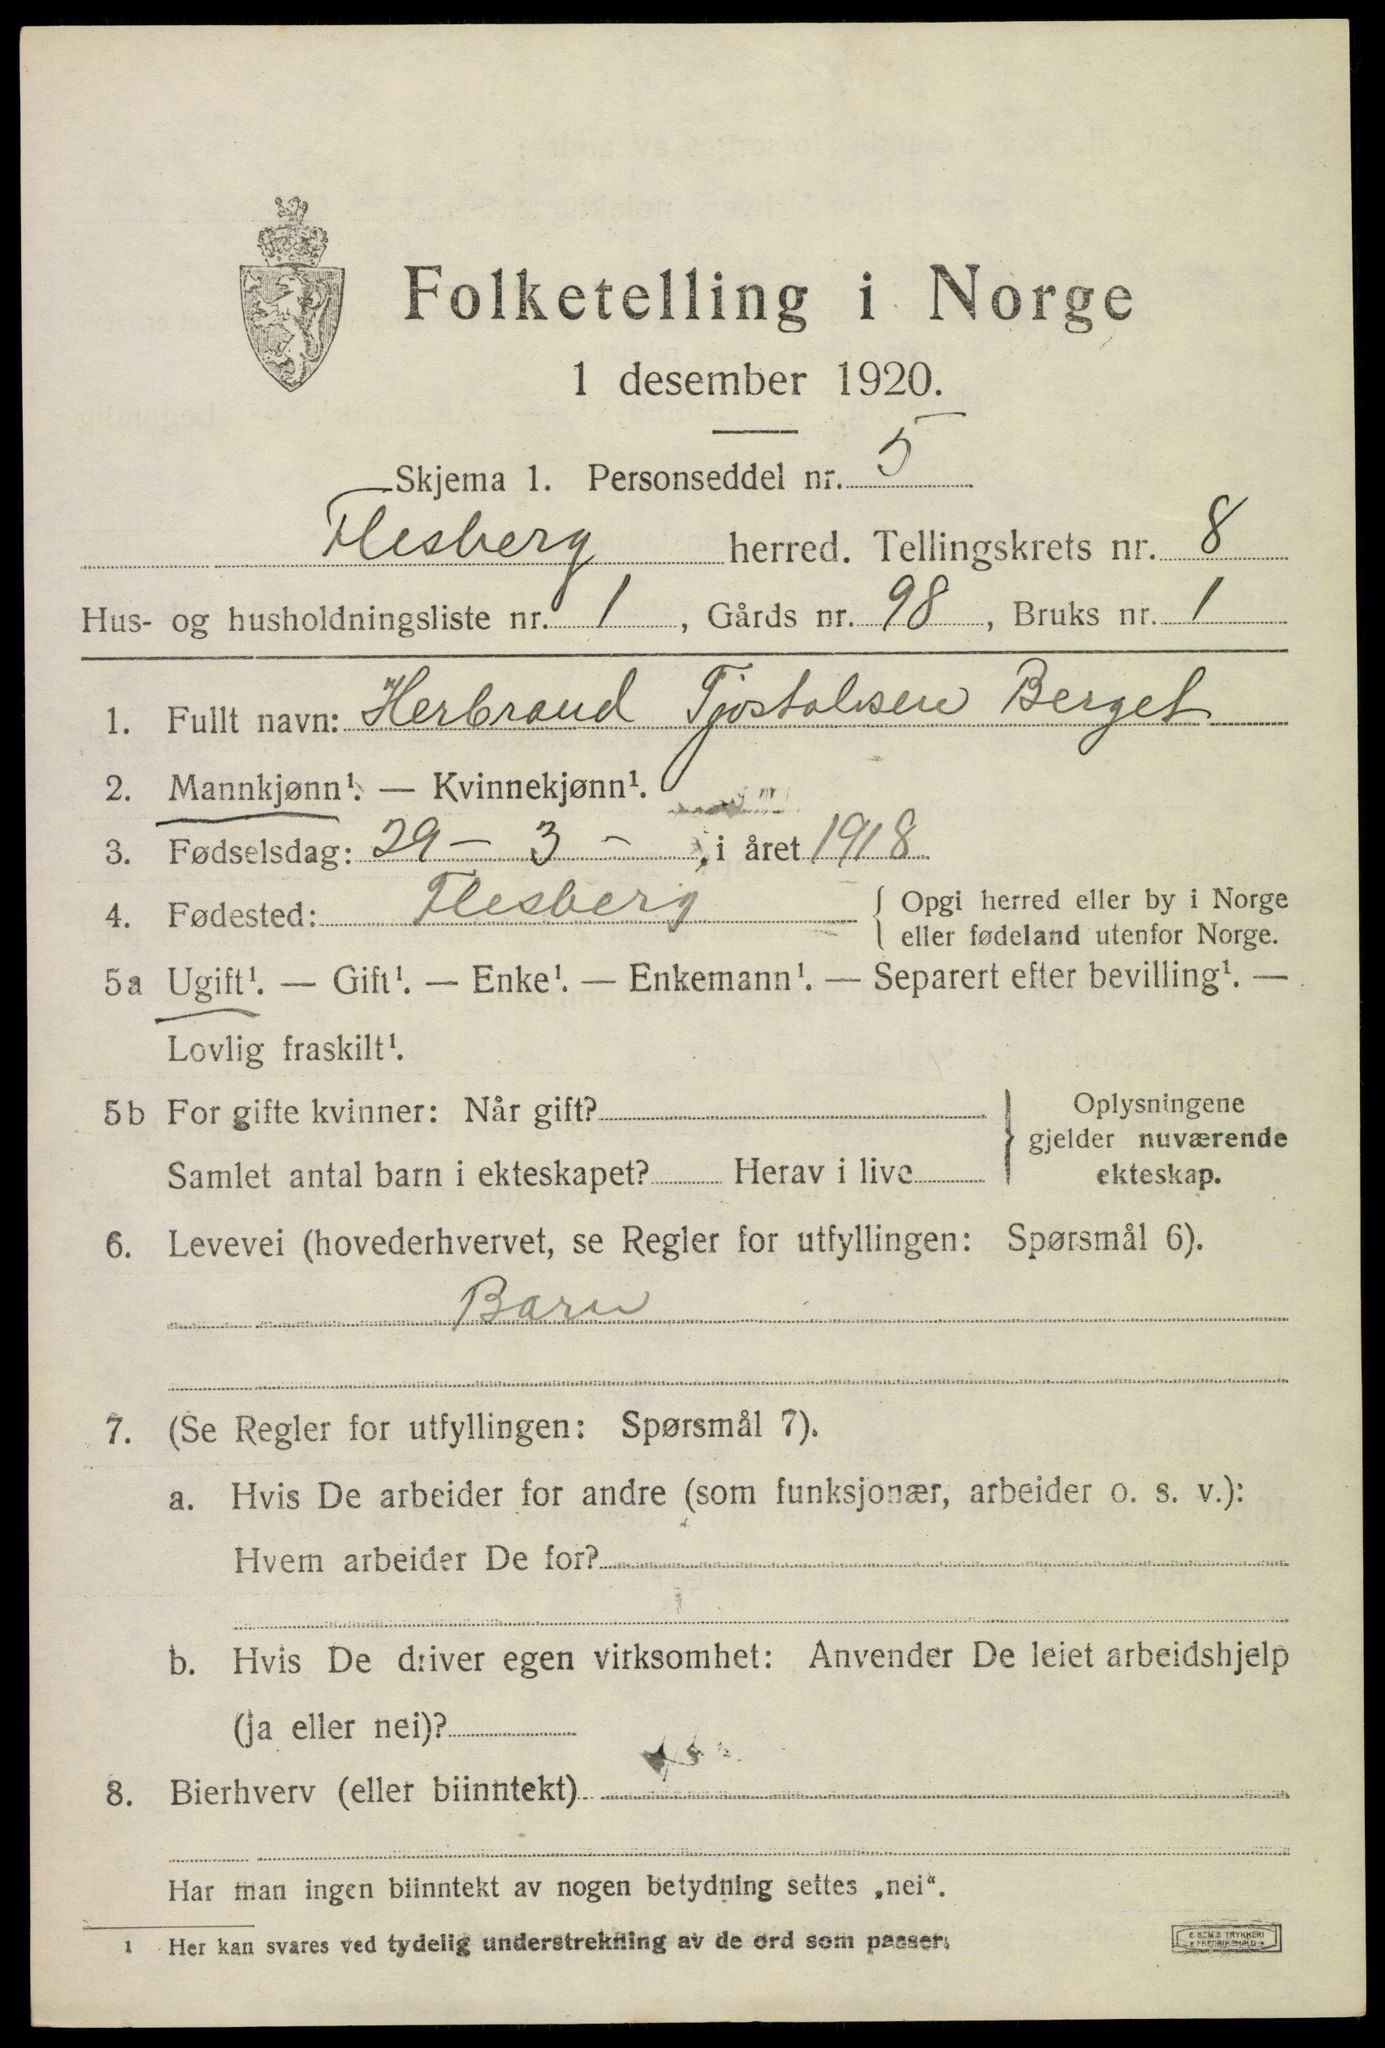 Folketelling i Norge
1 desember 1920.
Skjema 1. Personseddel nr. 5
Flesberg herred. Tellingskrets nr. 8
Hus- og husholdningsliste nr. 1, Gårds nr. 98, Bruks nr. 1
1. Fullt navn: Herbrand Tjostolvsen Berget
2. Mannkjønn¹. — Kvinnekjønn¹.
3. Fødselsdag: 29 – 3 – , i året 1918
4. Fødested: Flesberg { Opgi herred eller by i Norge
eller fødeland utenfor Norge.
5a Ugift¹. — Gift¹. — Enke¹. — Enkemann¹. — Separert efter bevilling¹. —
Lovlig fraskilt¹.
5b For gifte kvinner: Når gift? } Oplysningene
gjelder nuværende
Samlet antal barn i ekteskapet? Herav i live
ekteskap.
6. Levevei (hovederhvervet, se Regler for utfyllingen: Spørsmål 6).
Barn
7. (Se Regler for utfyllingen: Spørsmål 7).
a. Hvis De arbeider for andre (som funksjonær, arbeider o. s. v.):
Hvem arbeider De for?
b. Hvis De driver egen virksomhet: Anvender De leiet arbeidshjelp
(ja eller nei)?
8. Bierhverv (eller biinntekt)
Har man ingen biinntekt av nogen betydning settes „nei“.
1 Her kan svares ved tydelig understrekning av de ord som passer.
E. SEM'S TRYKKERI
FREDRIKSHALD